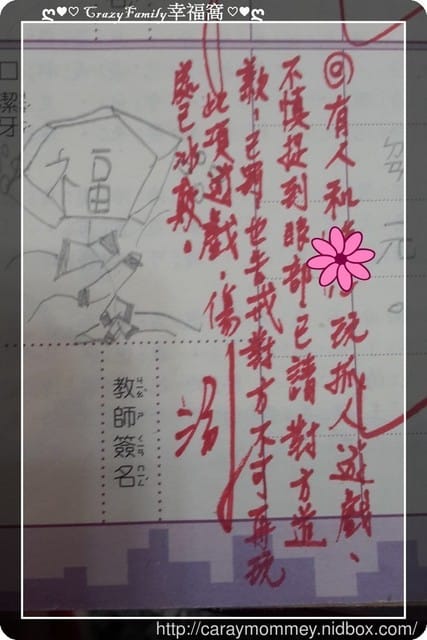 ღ♥♡ CrazyFamily幸福窩 ♡♥ღ
元。
◎有人和 玩抓人遊戲、
不慎捉到眼部已請對方道
歉,已 也告戒對方不可再玩
此項遊戲。傷
處已冰敷。
教師簽名
福
□潔牙
http://caraymommey.nidbox.com/